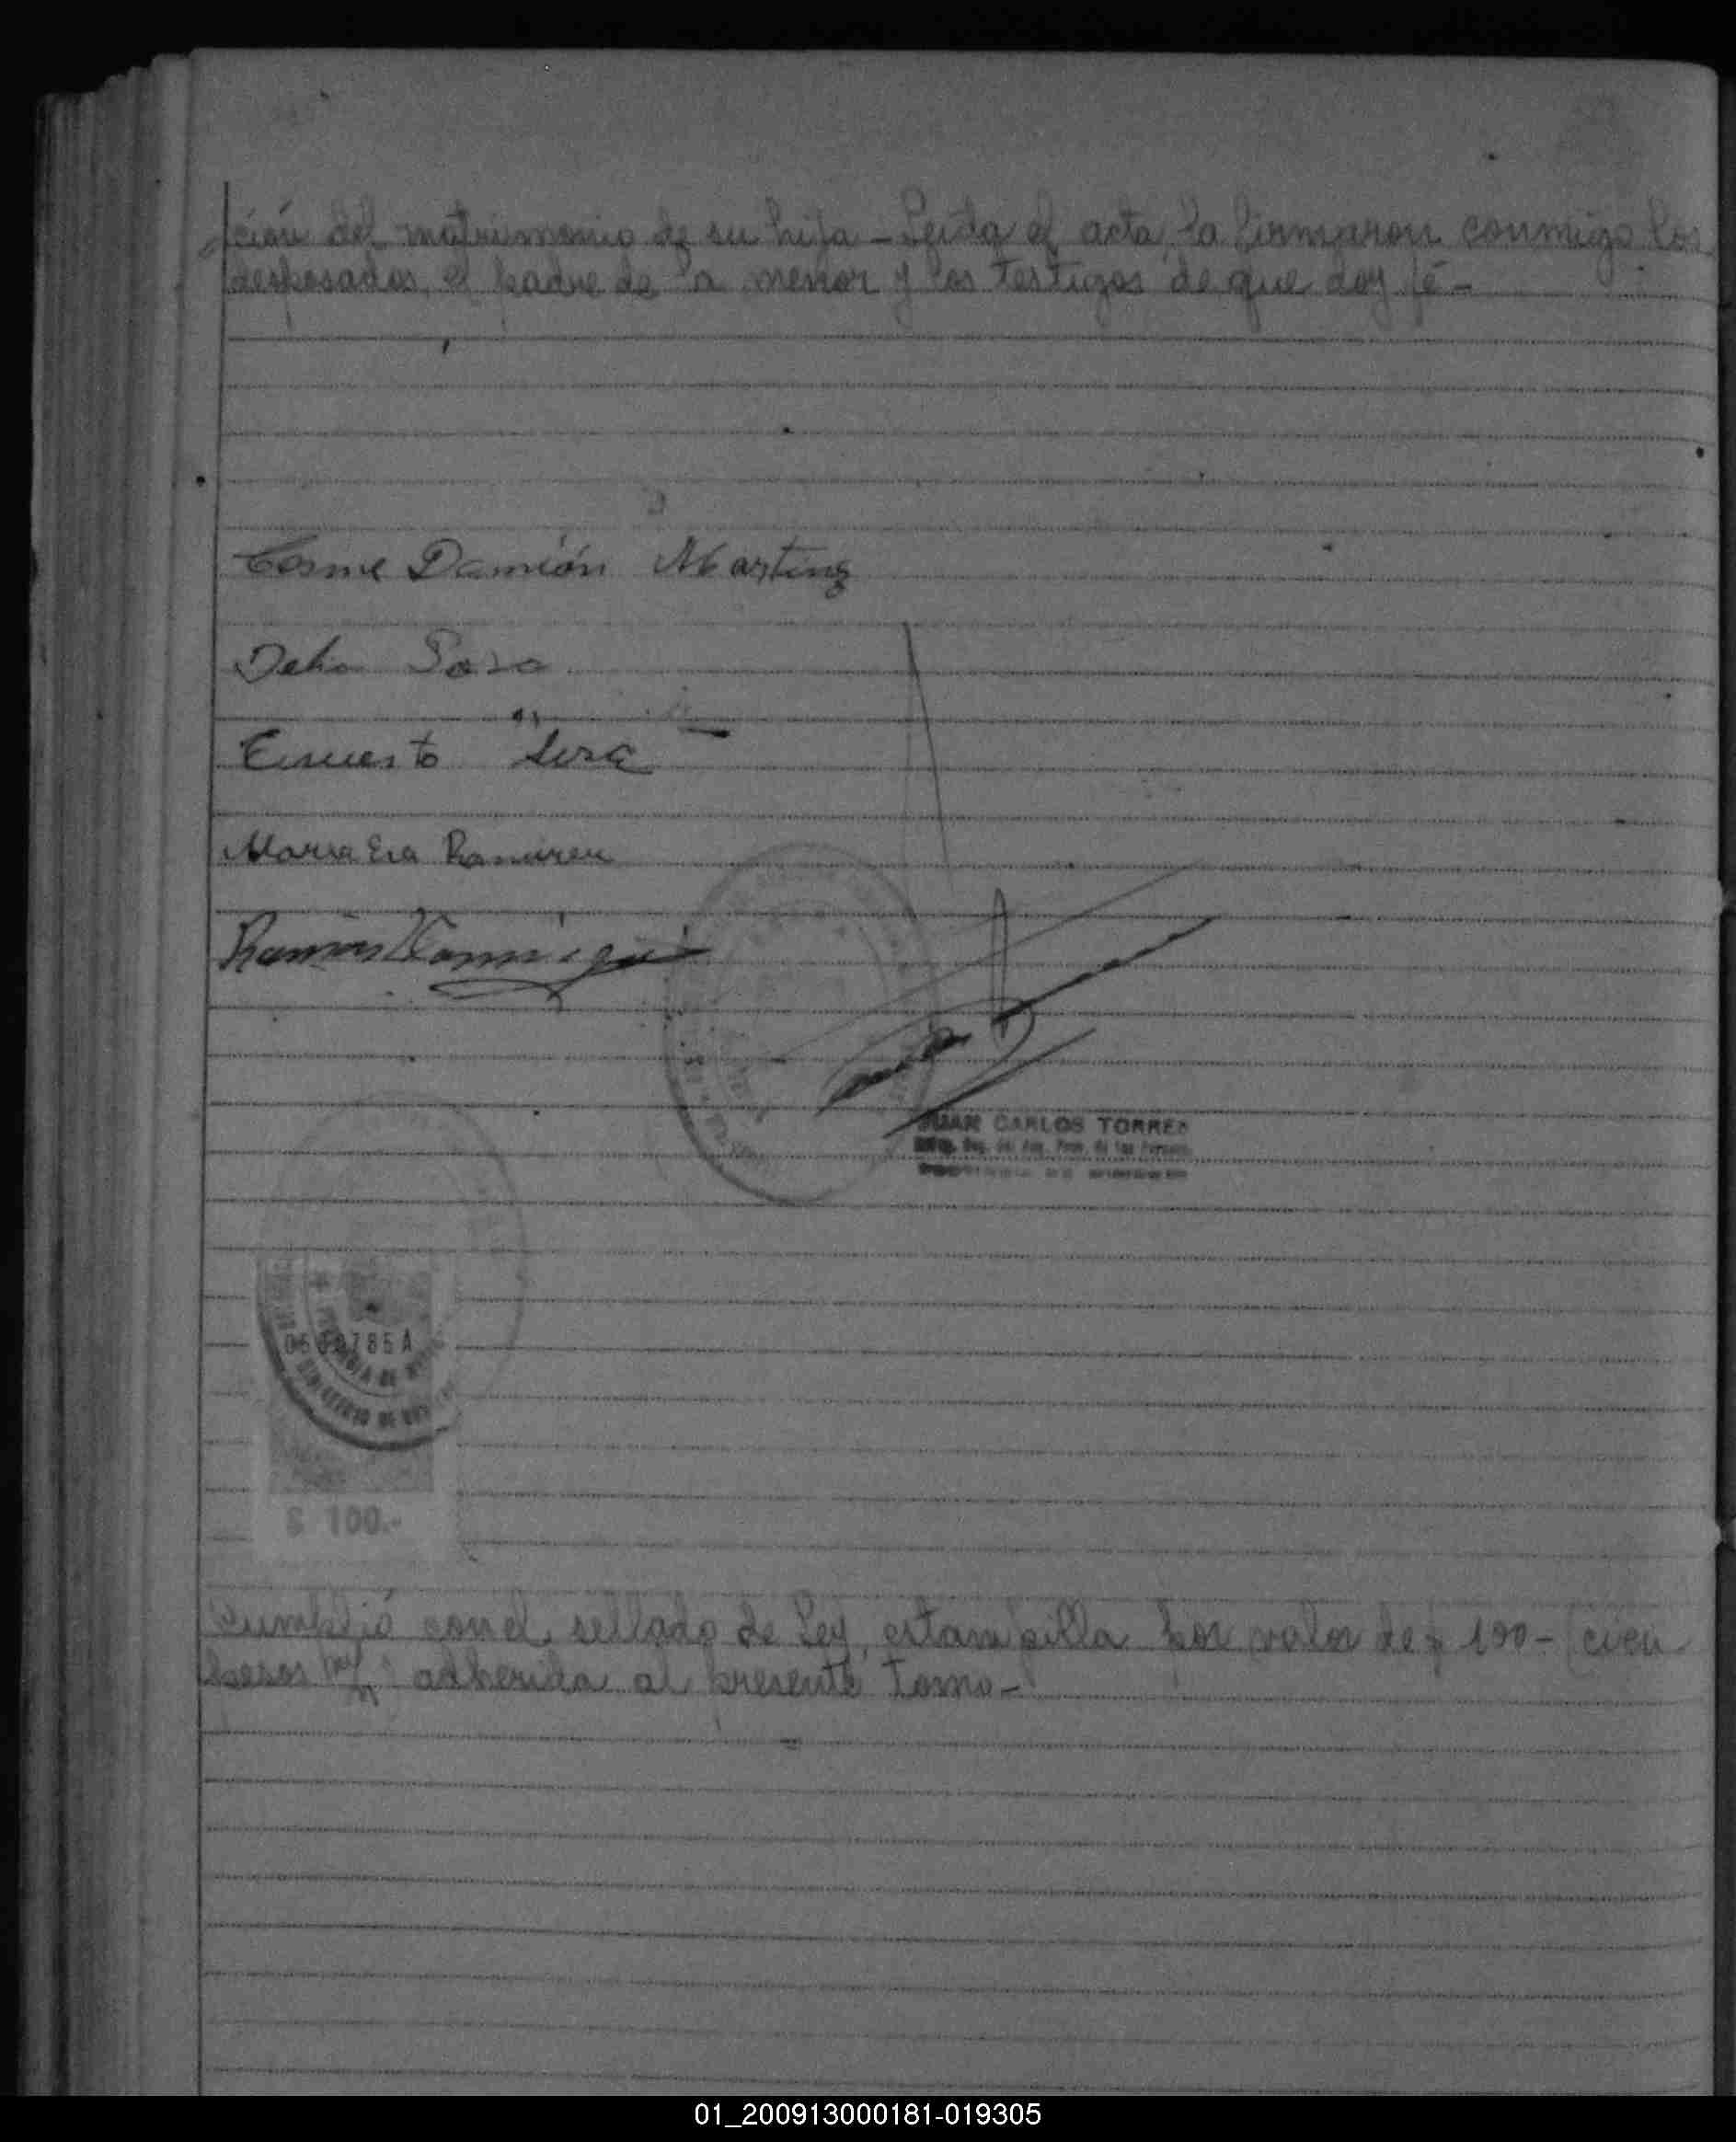 ción del matrimonio de su hija - Leida el acta, la firmaron conmigo los
desposados, el padre de la menor y los testigos de que doy fé -
Cosme Damión Martinz
Delia Sosa
Ernesto Sosa
Maria Eva Ramirez
Ramon
JUAN CARLOS TORRES
$ 100.-
Cumplió con el sellado de Ley, estampilla por valor de $ 100 - (cien
pesos m/n) adherida al presente Tomo -
01_200913000181-019305